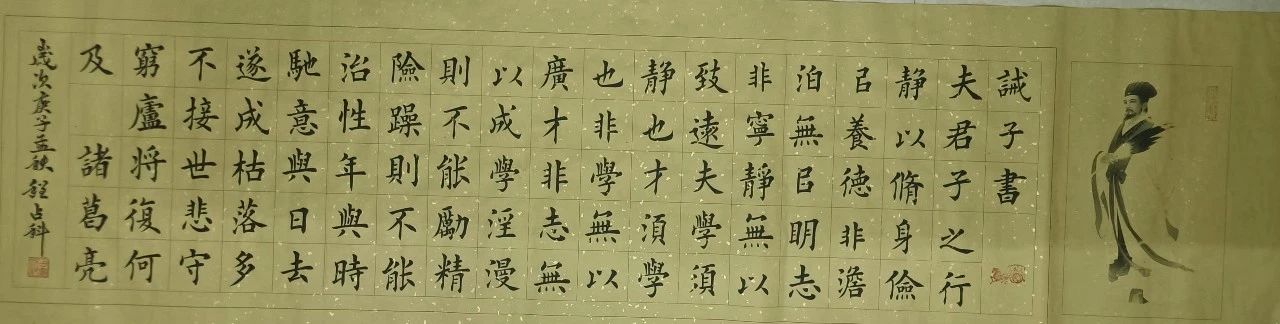 誡子書
夫君子之行
静以脩身儉
㠯養德非澹
泊無㠯明志
非寧靜無以
致遠夫學須
静也才須學
也非學無以
廣才非志無
以成學淫漫
則不能勵精
險躁則不能
治性年與時
馳意與日去
遂成枯落多
不接世悲守
窮廬将復何
及 諸葛亮
歲次庚子孟秋程占科